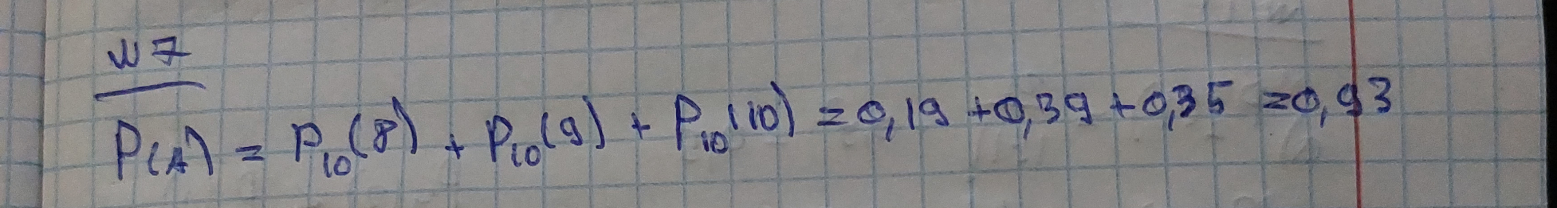 №7
P(A) = P₁₀(8) + P₁₀(9) + P₁₀(10) = 0,19 + 0,39 + 0,35 = 0,93